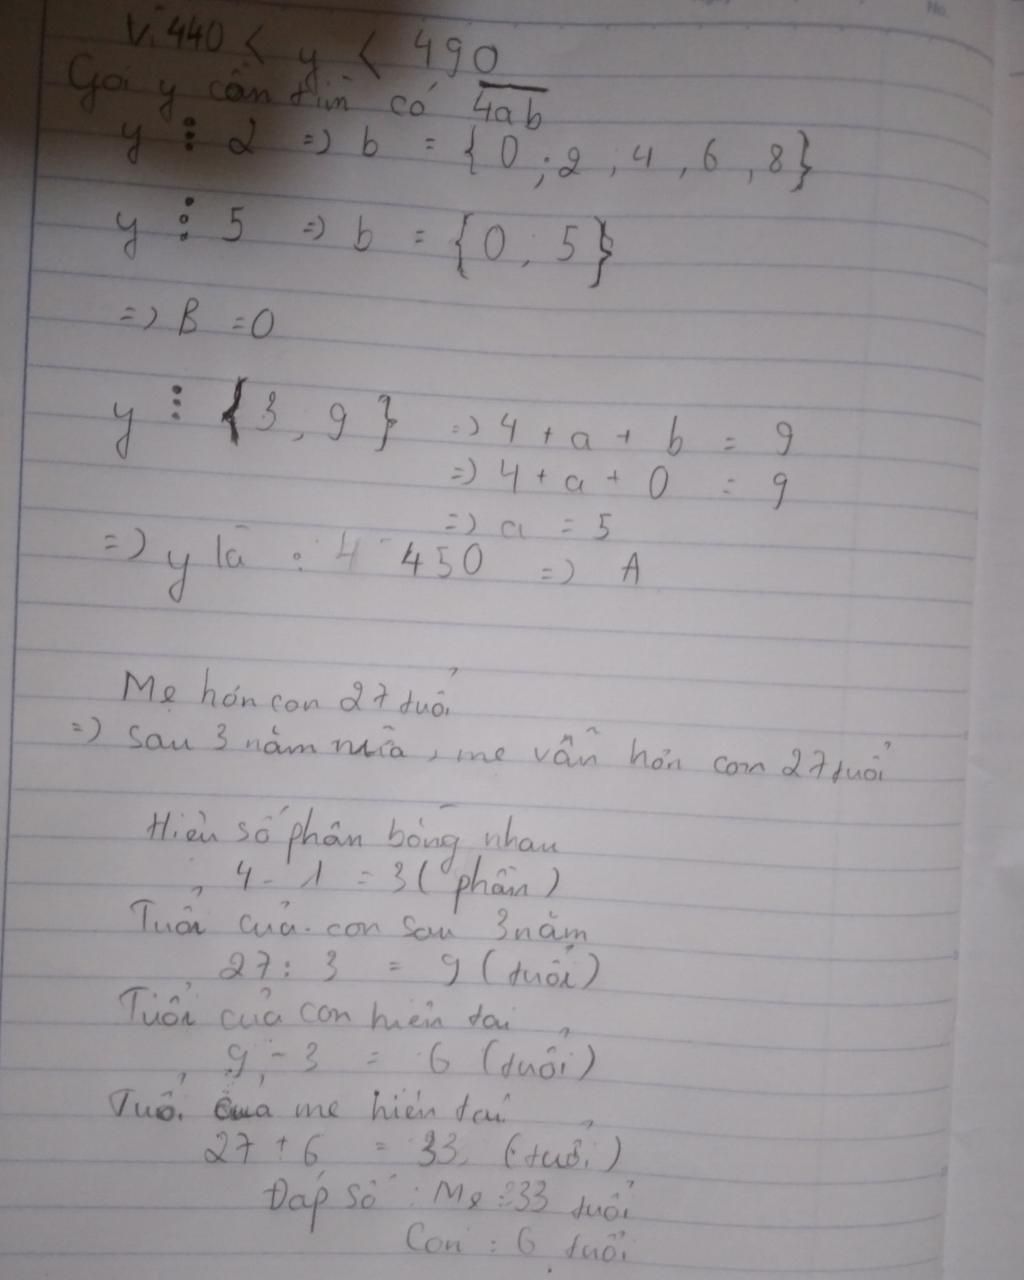 Vì 440 < y < 490
Gọi y cần tìm có 4ab
y ⋮ 2 => b = {0 ; 2 , 4 , 6 , 8}
y ⋮ 5 => b = {0 , 5}
=> B = 0
y ⋮ {3 , 9} => 4 + a + b = 9
=> 4 + a + 0 = 9
=> a = 5
=> y là : 4 450 => A
Mẹ hơn con 27 tuổi
=> Sau 3 năm nữa , mẹ vẫn hơn con 27 tuổi
Hiệu số phần bằng nhau
4 - 1 = 3 ( phần )
Tuổi của con sau 3 năm
27 : 3 = 9 ( tuổi )
Tuổi của con hiện tại
9 - 3 = 6 (tuổi)
Tuổi của mẹ hiện tại
27 + 6 = 33 (tuổi)
Đáp số : Mẹ : 33 tuổi
Con : 6 tuổi